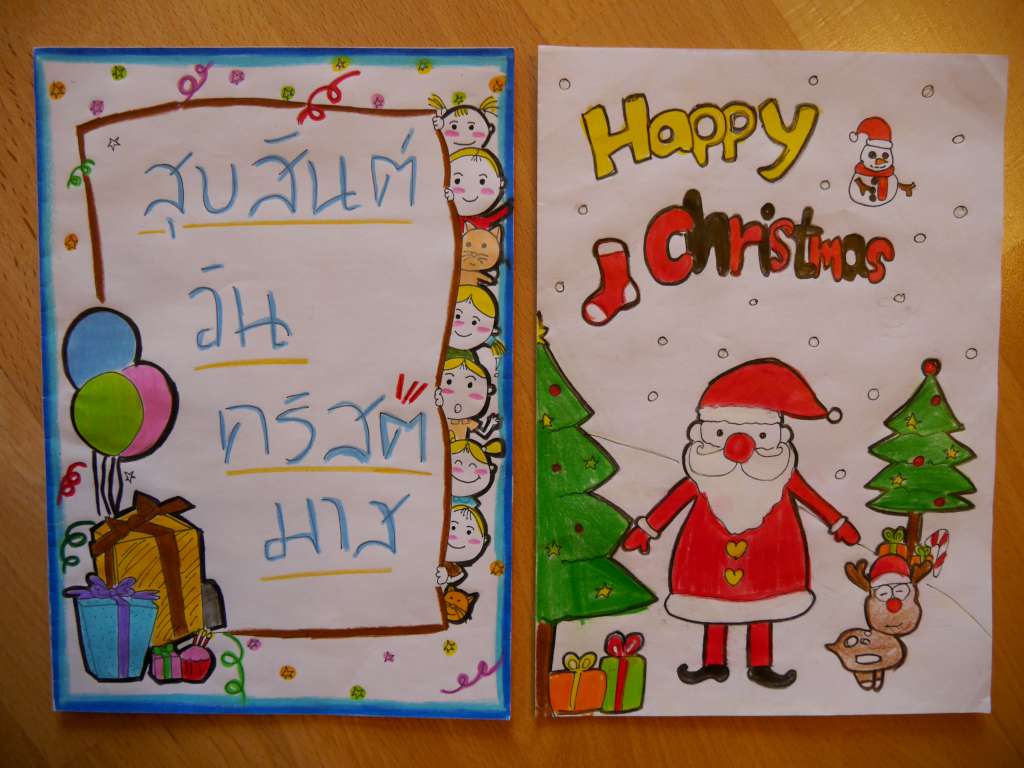 สุขสันต์
วัน
คริสต
มาส
Happy
Christmas